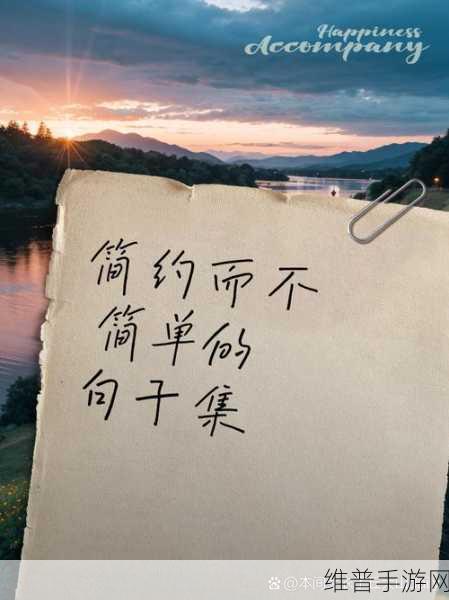 Happiness
Accompany
简约而不
简单的
句子集
维普手游网